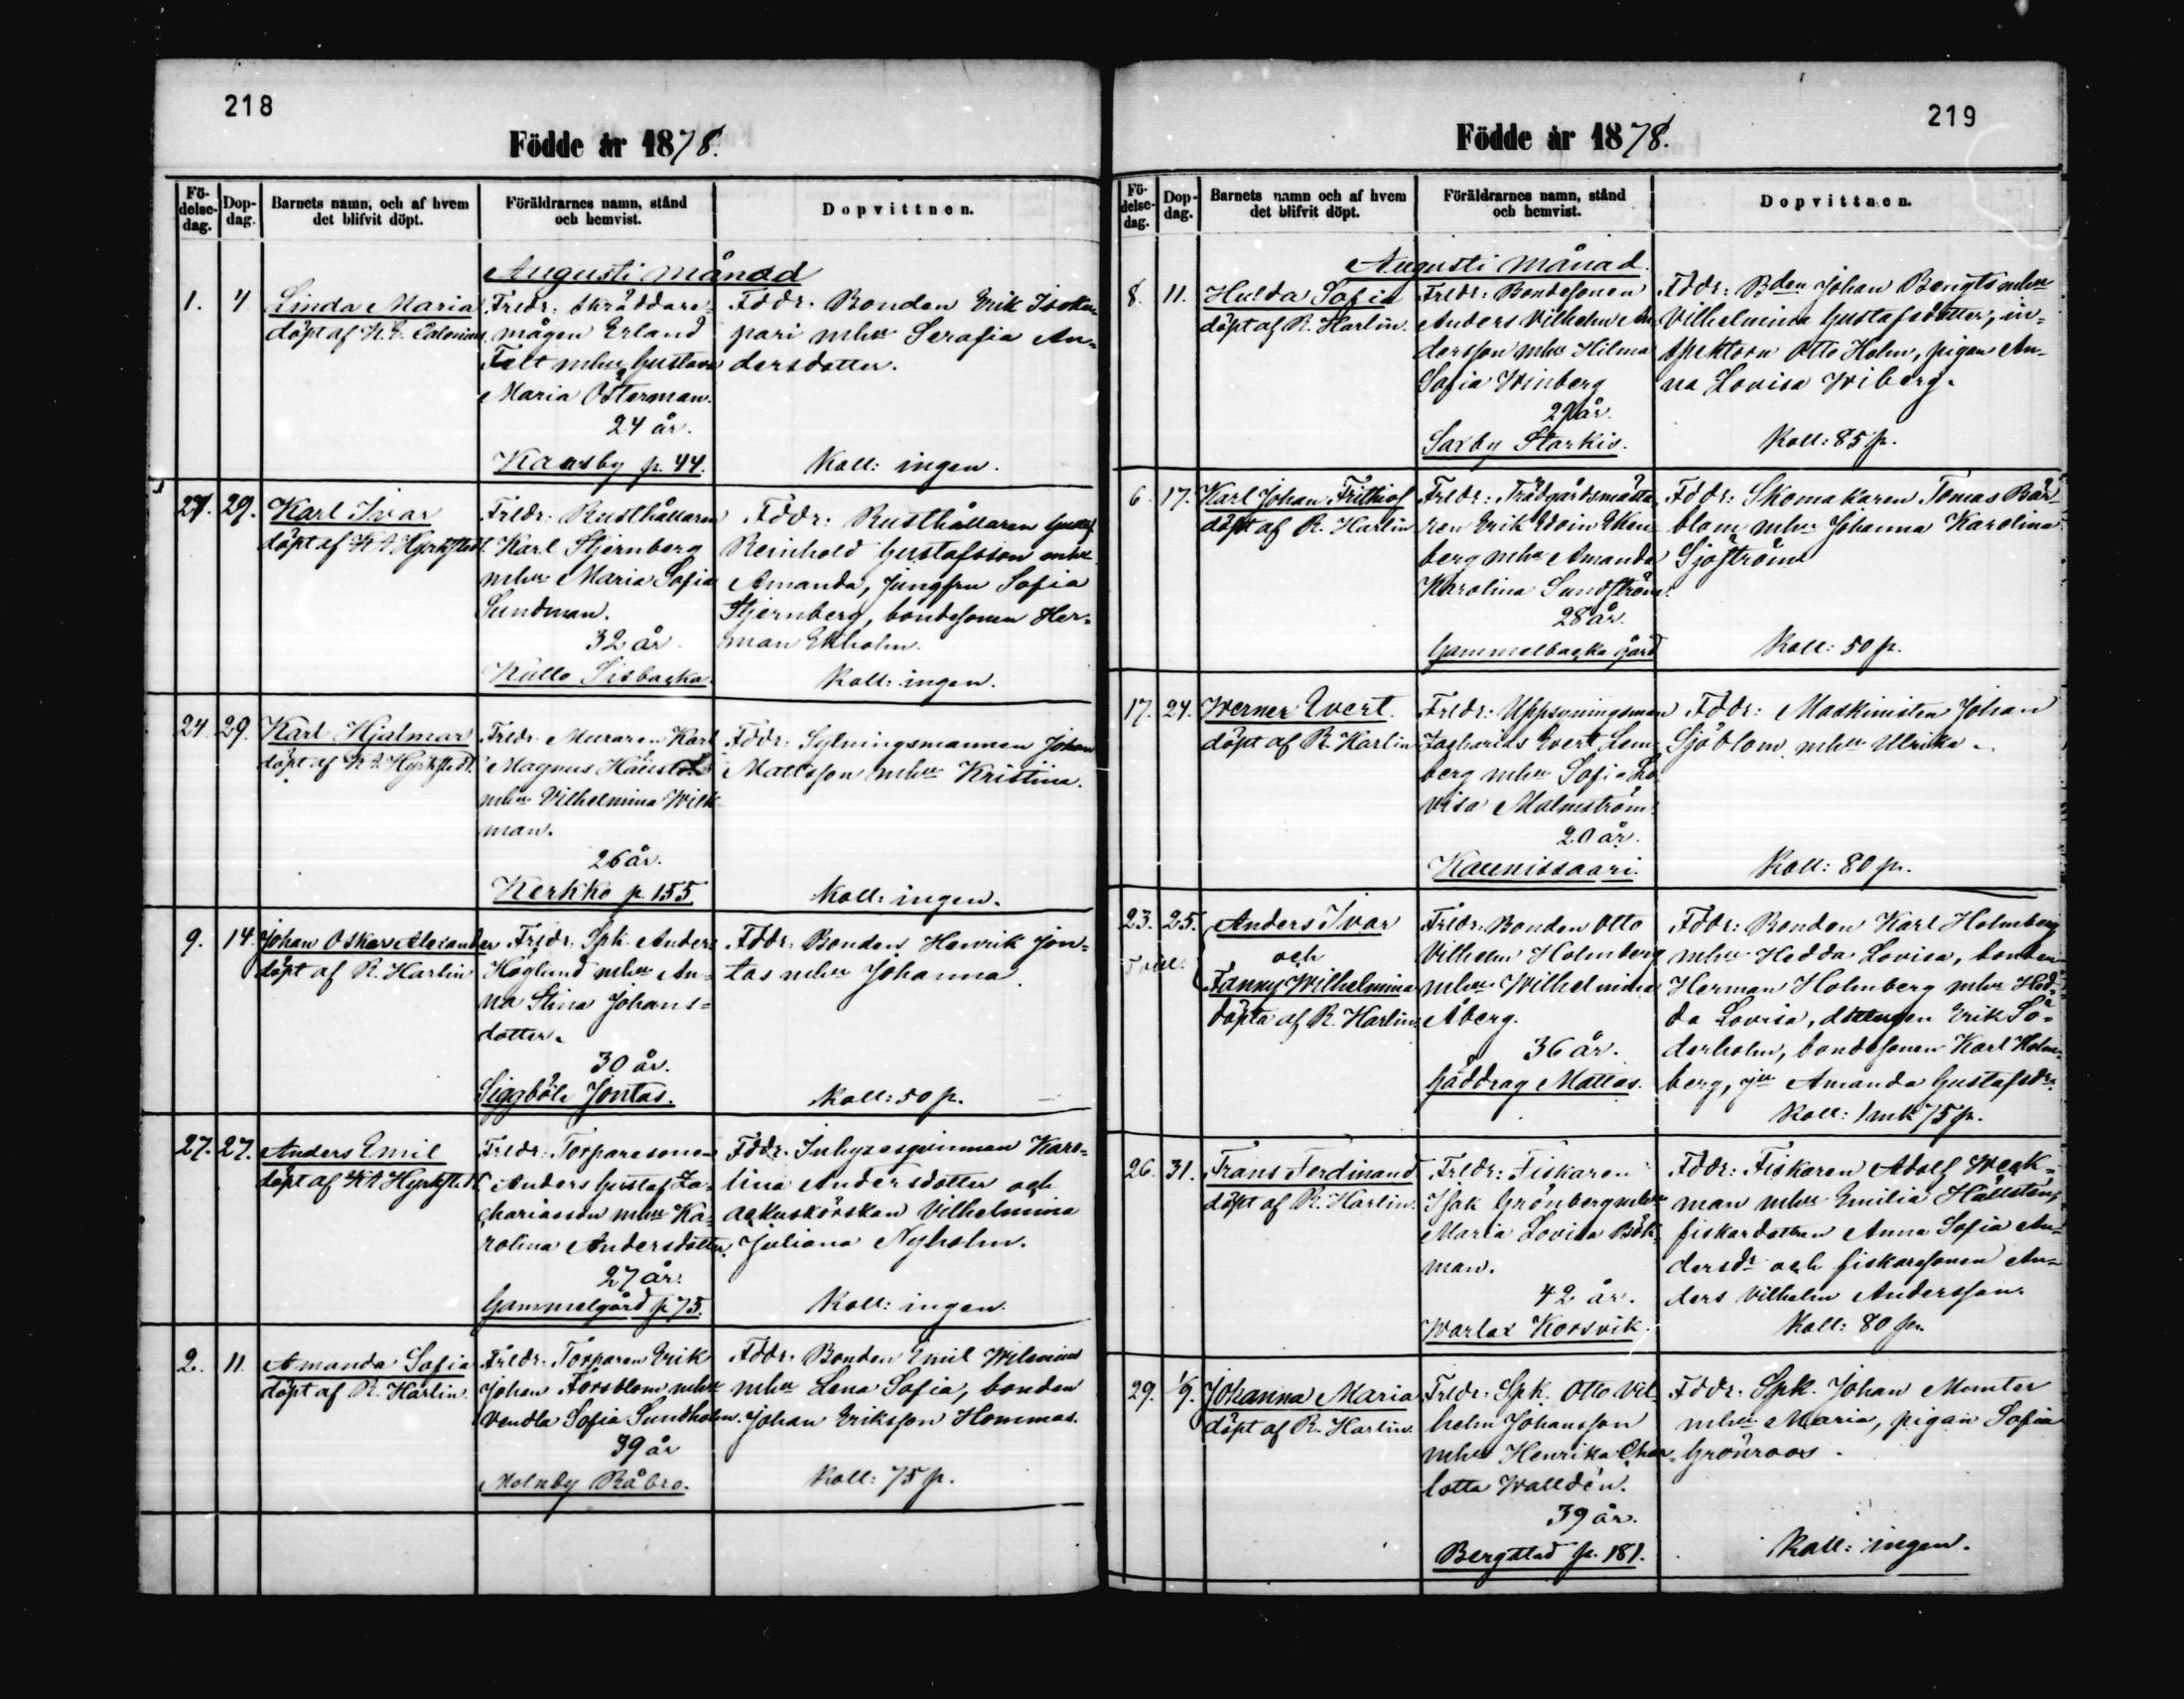 218
Födde år 1878.
Fö-
delse-
dag.
Dop-
dag.
Barnets namn, och af hvem
det blifvit döpt.
Föräldrarnes namn, stånd
och hemvist.
Dopvittnen.
Augusti månad
1.
4
Linda Maria
döpt af
Frldr: Skräddare-
mågen Erland
Felt mhu Gustava
Maria Österman.
24 år.
Kausby p. 44.
Fddr. Bonden Erik
pari mhu Serafia An-
dersdotter.
Koll: ingen.
27.
29.
Karl Ivar
döpt af K A Hyrkstedt.
Frldr: Rusthållaren
Karl Stjernberg
mhu Maria Sofia
Sundman.
32 år.
Kullo Sisbacka.
Fddr: Rusthållaren Gustaf
Reinhold Gustafsson mhu
Amanda, jungfru Sofia
Stjernberg, bondesonen Her-
man Ekholm.
Koll: ingen.
24.
29.
Karl Hjalmar
döpt af K A Hyrkstedt.
Frldr. Muraren Karl
Magnus
mhu Vilhelmina Wilk-
man.
26 år.
Kerkko p. 155
Fddr: Sytningsmannen Johan
Mattsson mhu Kristina.
Koll: ingen.
9.
14.
Johan Oskar Alexander
döpt af R. Harlin
Frldr. Spk. Anders
Höglund mhu An-
na Stina Johans-
dotter.
30 år.
Siggböle Jontas.
Fddr: Bonden Henrik Jon-
tas mhu Johanna.
Koll: 50 p.
27.
27.
Anders Emil
döpt af K A Hyrkstedt
Frldr: Torparesonen
Anders Gustaf Za-
chariasson mhu Ka-
rolina Andersdotter.
27 år.
Gammelgård p. 75.
Fddr. Inhysesqvinnan Karo-
lina Andersdotter och
ackuskörskan Vilhelmina
Juliana Nyholm.
Koll: ingen.
2.
11.
Amanda Sofia
döpt af R. Harlin.
Frldr. Torparen Erik
Johan Forsblom mhu
Vendla Sofia Sundholm.
39 år
Molnby Råbro.
Fddr. Bonden Emil Wilenius
mhu Lena Sofia, bonden
Johan Eriksson Hommas.
Koll: 75 p.
219
Födde år 1878.
Fö-
delse-
dag.
Dop-
dag.
Barnets namn och af hvem
det blifvit döpt.
Föräldrarnes namn, stånd
och hemvist.
Dopvittnen.
Augusti månad.
8.
11.
Hulda Sofia
döpt af R. Harlin.
Frldr: Bondesonen
Anders Vilhelm An-
dersson mhu Hilma
Sofia Winberg
29 år.
Saxby Starkis.
Fddr: Bden Johan Bengts mhu
Vilhelmina Gustafsdotter, in-
spektorn Otto Holm, pigan An-
na Lovisa Wiberg.
Koll: 85 p.
6.
17.
Karl Johan Frithiof
döpt af R. Harlin
Frldr: Trädgårdsmästa-
ren Erik Edvin Eken-
berg mhu Amanda
Karolina Sundström.
28 år.
Gammelbacka gård
Fddr: Skomakaren Tomas Bär-
blom mhu Johanna Karolina
Sjöström
Koll: 50 p.
17.
24.
Werner Evert.
döpt af R. Harlin
Frldr: Uppsyningsman
Zacharias Evert Lem-
berg mhu Sofia Lo-
visa Malmström.
20 år.
Kaunissaari.
Fddr: Maskinisten Johan
Sjöblom mhu Ulrika.
Koll: 80 p.
23.
25.
Tvill.
Anders Ivar
och
Fanny Wilhelmina
döpta af R. Harlin.
Frldr: Bonden Otto
Vilhelm Holmberg
mhu Wilhelmina
Åberg.
36 år.
Gäddrag Mattas.
Fddr: Bonden Karl Holmberg
mhu Hedda Lovisa, bonden
Herman Holmberg mhu Hed-
da Lovisa, Erik Sö-
derholm, bondesonen Karl Holm-
berg, jfr Amanda Gustafsdr.
Koll: 1 mk 75 p.
26.
31.
Frans Ferdinand
döpt af R. Harlin.
Frldr: Fiskaren
Isak Grönberg mhu
Maria Lovisa Bök-
man.
42 år.
Warlax Korsvik.
Fddr: Fiskaren Adolf Weck-
man mhu Emilia Hällsten,
fiskardottren Anna Sofia An-
dersdr och fiskaresonen An-
ders Vilhelm Andersson.
Koll: 80 p.
29.
1/9.
Johanna Maria
döpt af R. Harlin.
Frldr: Spk. Otto Vil-
helm Johansson
mhu Henrika Char-
lotta Walldén.
39 år.
Bergstad p. 181.
Fddr: Spk. Johan Munter
mhu Maria, pigan Sofia
Grönroos.
Koll: ingen.